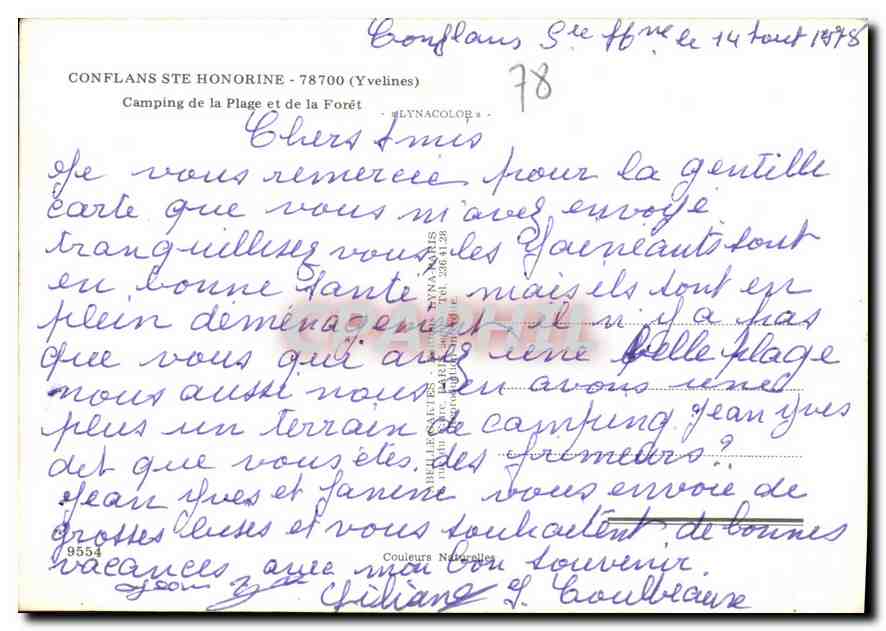 Conflans Ste Hne le 14 Aout 1978
78
CONFLANS STE HONORINE - 78700 (Yvelines)
Camping de la Plage et de la Forêt
- «LYNACOLOR» -
Chers Amis
Je vous remercie pour la gentille
carte que vous m'avez envoyé
tranquillisez vous les fainéants sont
en bonne santé, mais ils sont en
plein déménagement il n'y a pas
que vous qui avez une belle plage
nous aussi nous en avons une
plus un terrain de camping. Jean Yves
dit que vous êtes des frimeurs?
Jean Yves et Janine vous envoie de
grosses bises et vous souhaitent de bonnes
vacances avec mon bon souvenir.
9554
Couleurs Naturelles
Jean
Liliane
LYNA-PARIS
Tél. 236 41.28
CPAPHIL